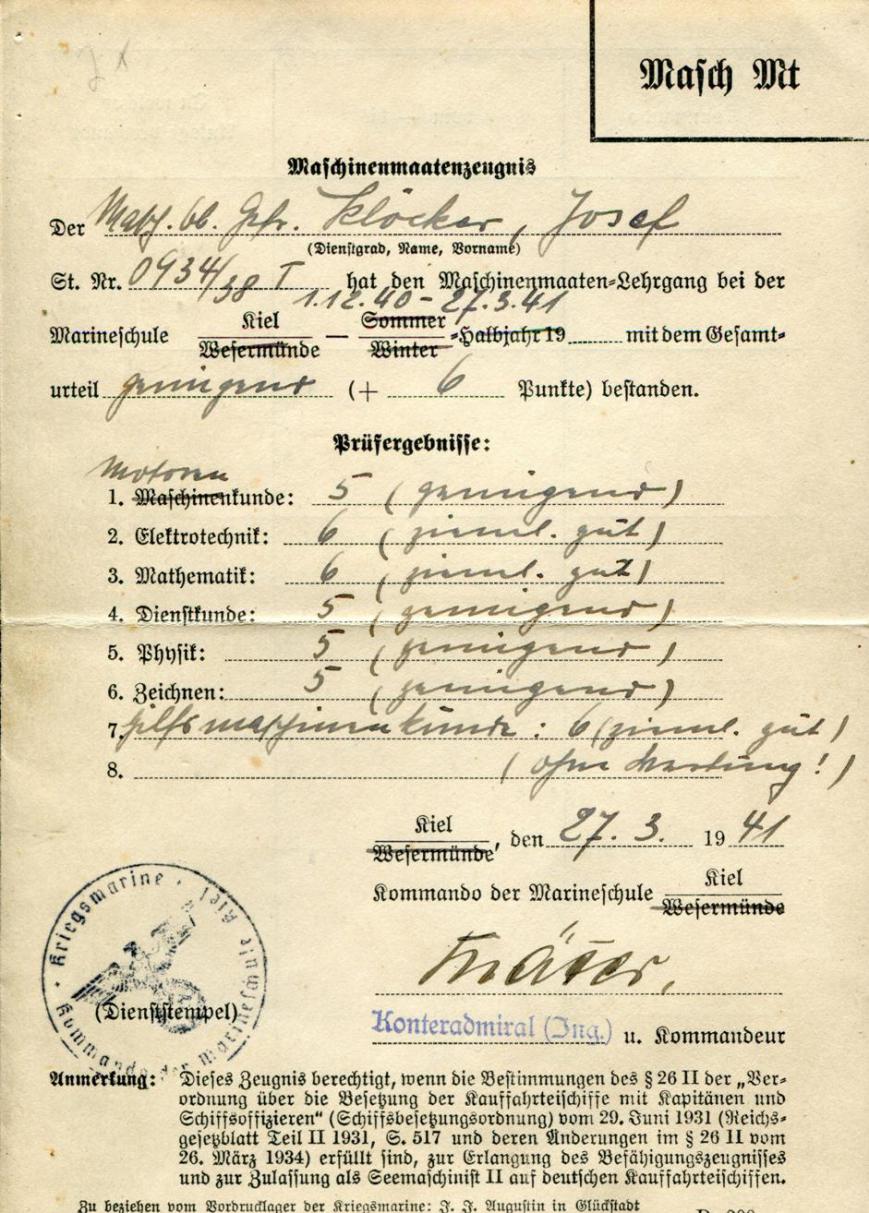 Masch Mt
Maschinenmaatenzeugnis
Der Masch. Ob. Gefr. Klöcker, Josef
(Dienstgrad, Name, Vorname)
St. Nr. 0934/38 T hat den Maschinenmaaten-Lehrgang bei der
1.12.40 - 27.3.41
Marineschule Kiel Wesermünde — Sommer Winter -Halbjahr 19 mit dem Gesamt-
urteil genügend (+ 6 Punkte) bestanden.
Prüfergebnisse:
Motoren
1. Maschinenkunde: 5 (genügend)
2. Elektrotechnik: 6 (zieml. gut)
3. Mathematik: 6 (zieml. gut)
4. Dienstkunde: 5 (genügend)
5. Physik: 5 (genügend)
6. Zeichnen: 5 (genügend)
7. Hilfsmaschinenkunde: 6 (zieml. gut)
8. (ohne Wertung!)
Kiel Wesermünde, den 27. 3. 19 41
Kommando der Marineschule Kiel Wesermünde
Kriegsmarine
Kommando der Marineschule Kiel
(Dienststempel)
Konteradmiral (Ing.) u. Kommandeur
Anmerkung: Dieses Zeugnis berechtigt, wenn die Bestimmungen des § 26 II der „Ver-
ordnung über die Besetzung der Kauffahrteischiffe mit Kapitänen und
Schiffsoffizieren“ (Schiffsbesetzungsordnung) vom 29. Juni 1931 (Reichs-
gesetzblatt Teil II 1931, S. 517 und deren Änderungen im § 26 II vom
26. März 1934) erfüllt sind, zur Erlangung des Befähigungszeugnisses
und zur Zulassung als Seemaschinist II auf deutschen Kauffahrteischiffen.
Zu beziehen vom Vordrucklager der Kriegsmarine: J. J. Augustin in Glückstadt